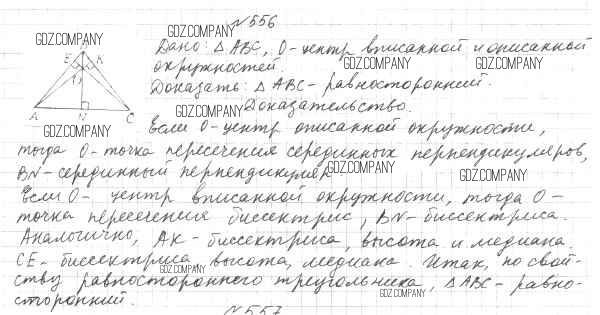 №556
GDZ.COMPANY
GDZ.COMPANY
Дано: △ABC, O - центр вписанной и описанной
окружностей.
GDZ.COMPANY
GDZ.COMPANY
Доказать: △ABC - равносторонний.
GDZ.COMPANY
Доказательство.
B
E
K
O
A
N
C
GDZ.COMPANY
Если O - центр описанной окружности,
тогда O - точка пересечения серединных перпендикуляров,
BN - серединный перпендикуляр
GDZ.COMPANY
GDZ.COMPANY
Если O - центр вписанной окружности, тогда O -
точка пересечения биссектрис, BN - биссектриса.
Аналогично, AK - биссектриса, высота и медиана.
CE - биссектриса высота, медиана. Итак, по свой-
GDZ.COMPANY
ству равностороннего треугольника, △ABC - равно-
GDZ.COMPANY
сторонний.
№557